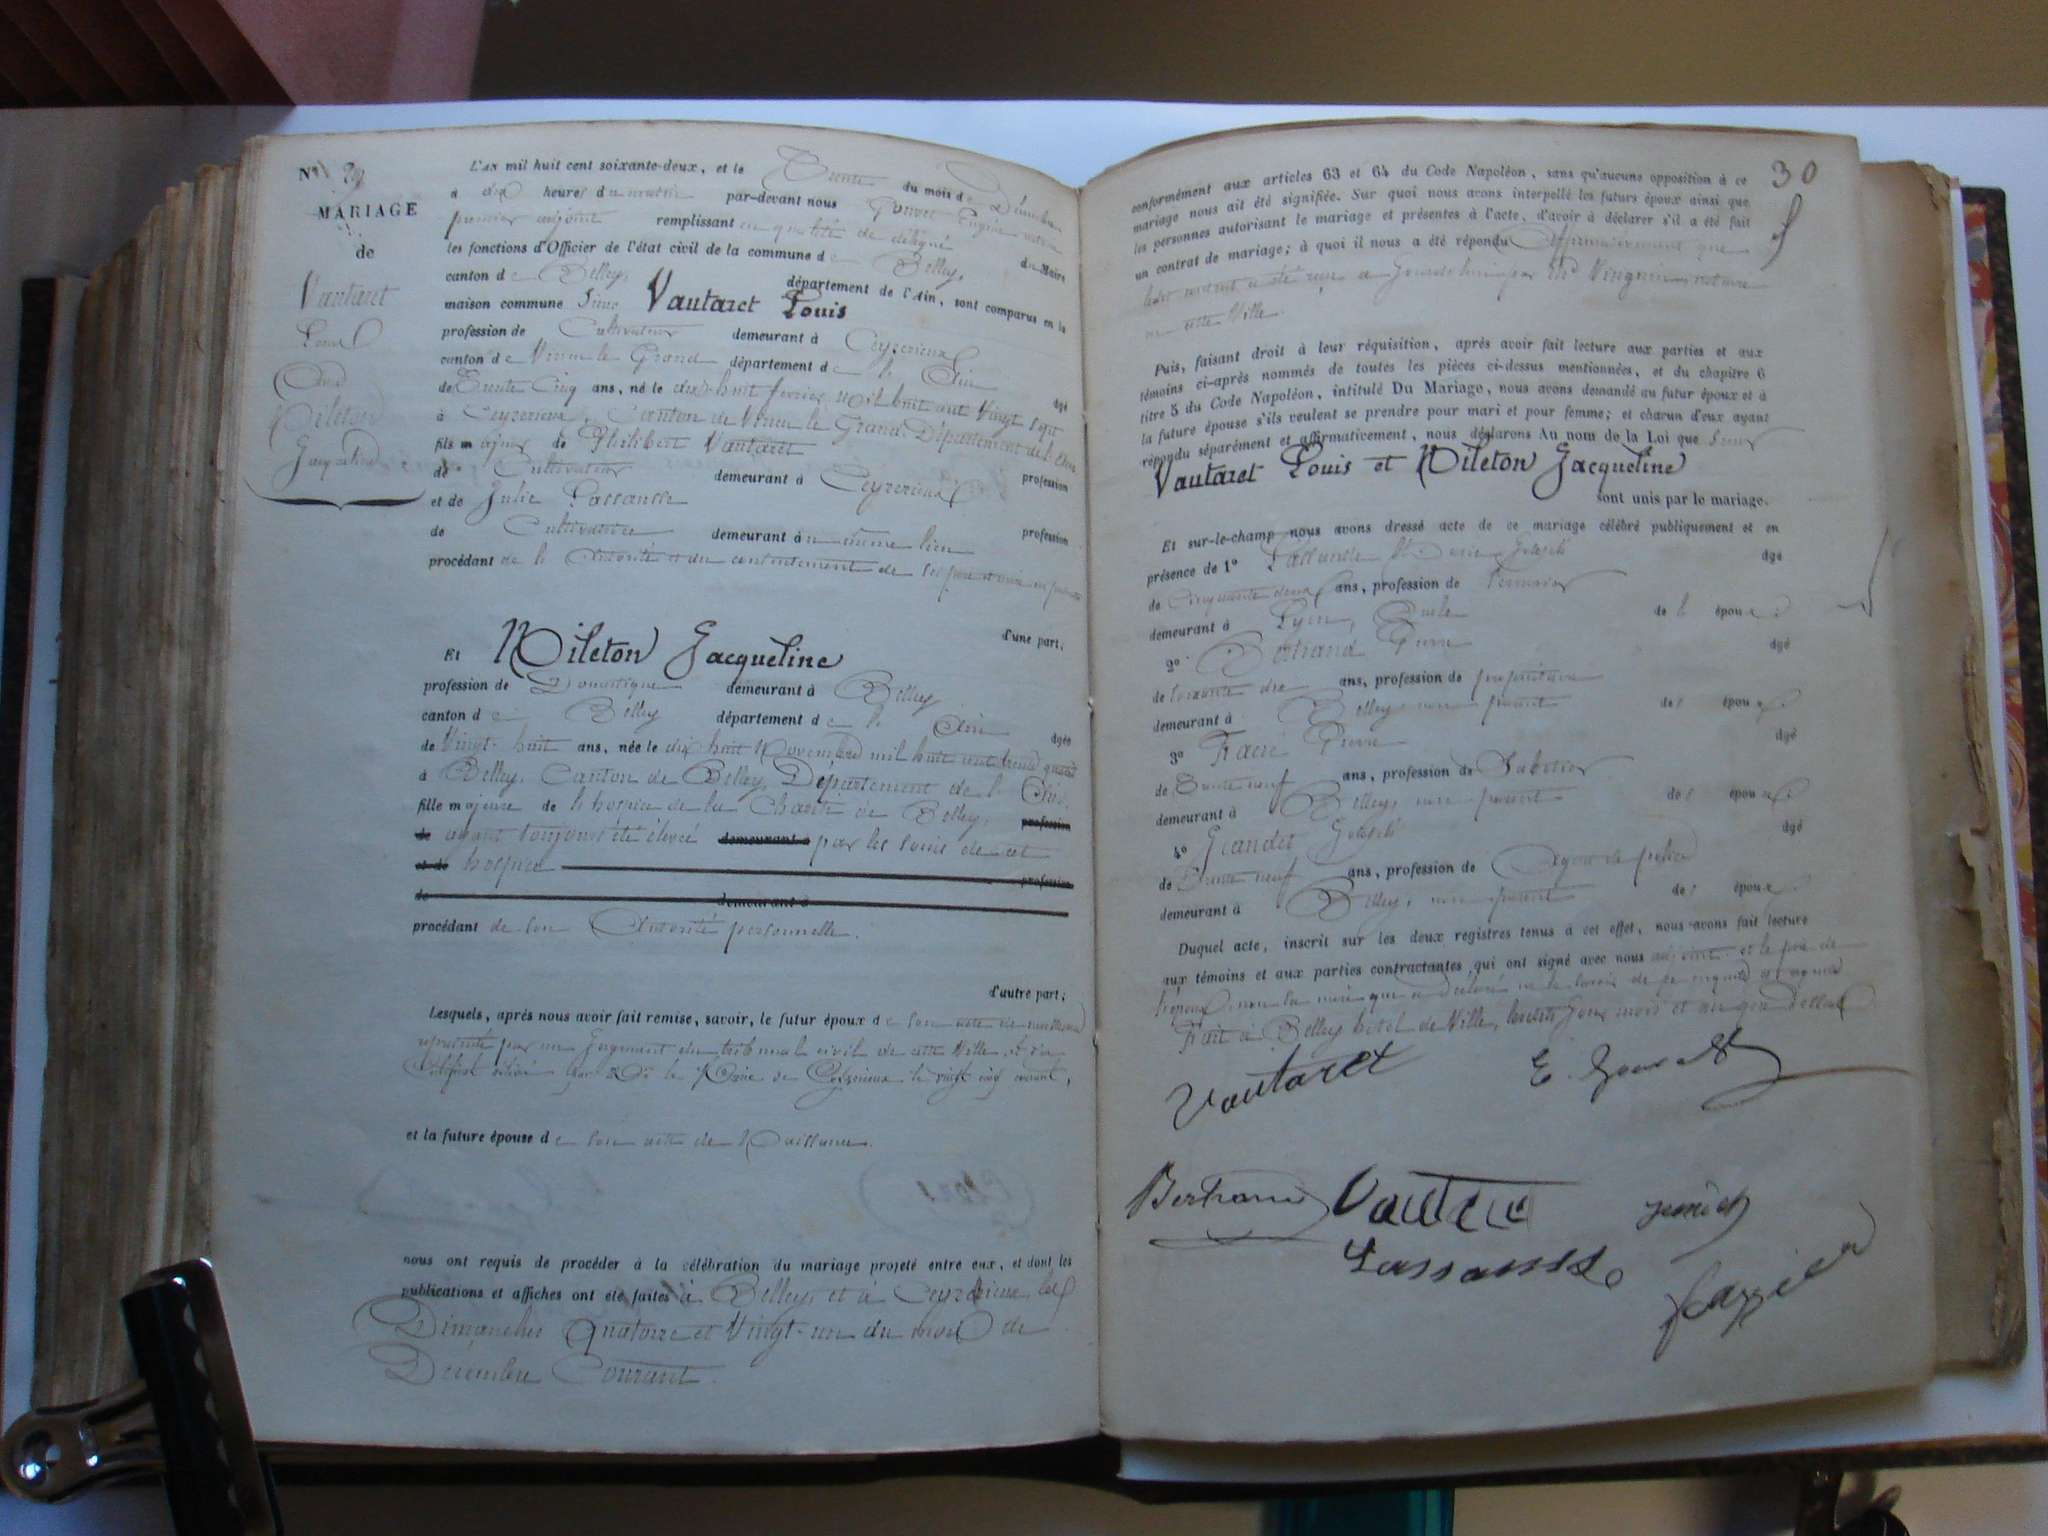 Nº 29
MARIAGE
de
Vautaret
Louis
Et
Mileton
Jacqueline
L'AN mil huit cent soixante-deux, et le Trente du mois de Décembre
à dix heures du matin par-devant nous Eugène
premier adjoint remplissant en qualité de délégué du Maire
les fonctions d'Officier de l'état civil de la commune de Belley,
canton de Belley, département de l'Ain, sont comparus en la
maison commune Sieur Vautaret Louis
profession de Cultivateur demeurant à Ceyzerieux
canton de Virieu le Grand département de l' Ain âgé
de Trente Cinq ans, né le dix-huit février mil huit cent Vingt Sept
à Ceyzerieux, Canton de Virieu le Grand, Département de l'Ain
fils majeur de Philibert Vautaret profession
de Cultivateur demeurant à Ceyzerieux
et de Julie Passansse profession
de Cultivatrice demeurant à même lieu
procédant de l' Autorité et du consentement de ses père et mère
d'une part;
Et Mileton Jacqueline
profession de Domestique demeurant à Belley
canton de Belley département de l' Ain âgée
de Vingt-huit ans, née le dix huit Novembre mil huit cent trente quatre
à Belley, Canton de Belley, Département de l' Ain,
fille majeure de l'hospice de la Charité de Belley, profession
de ayant toujours été élevée demeurant à par les soins de cet
et de hospice profession
de demeurant à
procédant de son Autorité personnelle.
d'autre part;
Lesquels, après nous avoir fait remise, savoir, le futur époux de son acte de naissance
par un Jugement du tribunal civil de cette Ville, et d'un
Certificat délivré par Mr le Maire de Ceyzerieux le vingt cinq courant,
et la future épouse de son acte de Naissance.
nous ont requis de procéder à la célébration du mariage projeté entre eux, et dont les
publications et affiches ont été faites à Belley et à Ceyzerieux les
Dimanches Quatorze et Vingt-un du mois de
Décembre Courant.
30
conformément aux articles 63 et 64 du Code Napoléon, sans qu'aucune opposition à ce
mariage nous ait été signifiée. Sur quoi nous avons interpellé les futurs époux ainsi que
les personnes autorisant le mariage et présentes à l'acte, d'avoir à déclarer s'il a été fait
un contrat de mariage; à quoi il nous a été répondu Affirmativement que
ledit contrat a été reçu Aujourd'hui par Me Vingtrin, notaire
en cette Ville.
Puis, faisant droit à leur réquisition, après avoir fait lecture aux parties et aux
témoins ci-après nommés de toutes les pièces ci-dessus mentionnées, et du chapitre 6
titre 5 du Code Napoléon, intitulé Du Mariage, nous avons demandé au futur époux et à
la future épouse s'ils veulent se prendre pour mari et pour femme; et chacun d'eux ayant
répondu séparément et affirmativement, nous déclarons Au nom de la Loi que Sieur
Vautaret Louis et Mileton Jacqueline
sont unis par le mariage.
Et sur-le-champ nous avons dressé acte de ce mariage célébré publiquement et en
présence de 1º Passansse Joseph âgé
de Cinquante deux ans, profession de
demeurant à Lyon, Oncle de l' époux.
2º Bertrand Pierre âgé
de soixante dix ans, profession de propriétaire
demeurant à Belley, non parent des époux.
3º Pierre âgé
de Trente neuf ans, profession de Sabotier
demeurant à Belley, non parent des époux.
4º Joseph âgé
de Trente neuf ans, profession de Agent de police
demeurant à Belley, non parent des époux.
Duquel acte, inscrit sur les deux registres tenus à cet effet, nous avons fait lecture
aux témoins et aux parties contractantes qui ont signé avec nous adjoint et le père de
l'époux, non la mère qui a déclaré ne le savoir de ce enquise et requise
Fait à Belley hôtel de Ville, lesdits jour mois et an que dessus
Vautaret
Bertrand
Vautaret
Passansse